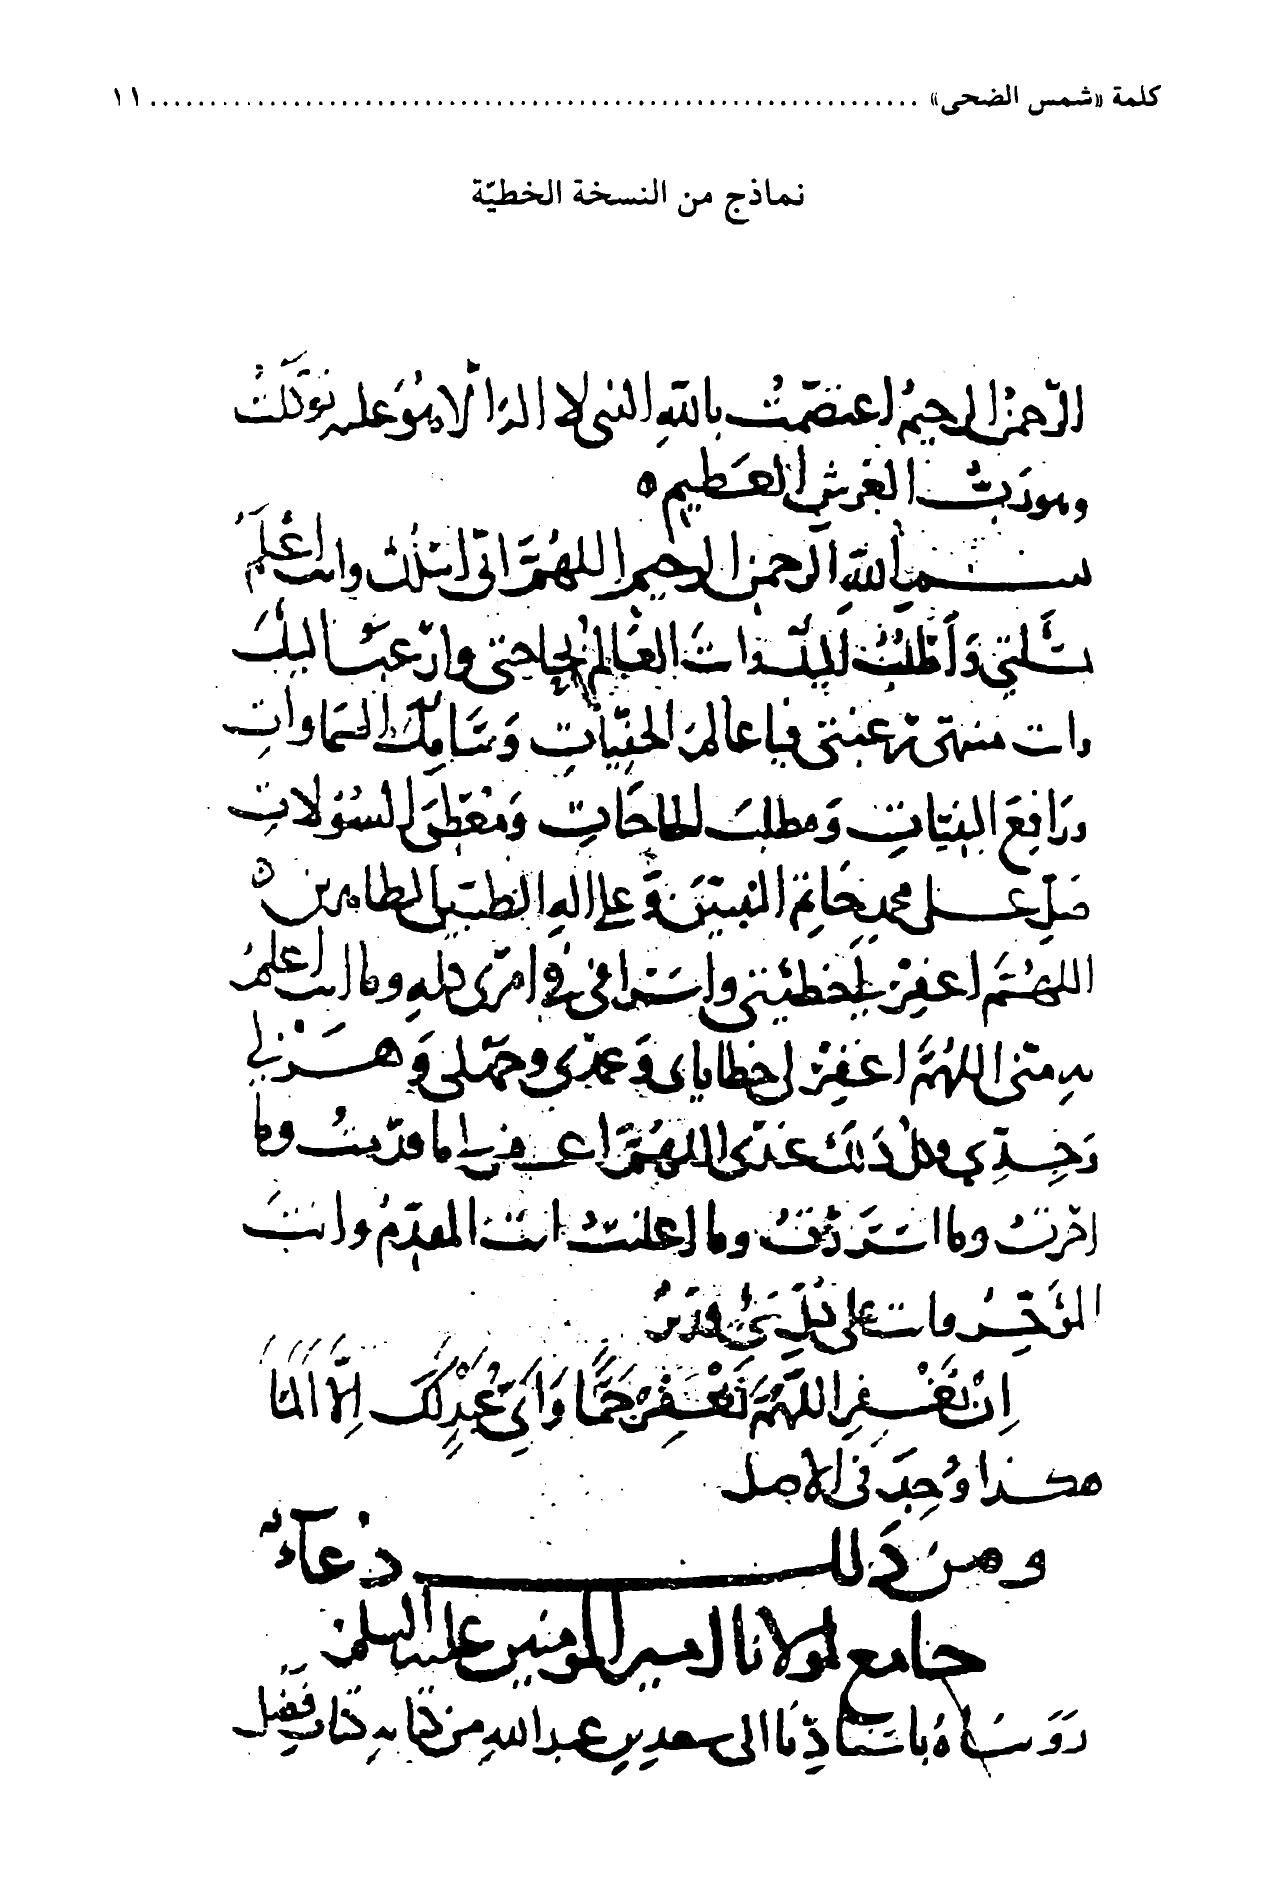 كلمة «شمس الضحى» ........................................ ١١
نماذج من النسخة الخطيّة
الرّحمن الرحيم اعتصمت بالله الذي لا اله الا هو عليه توكلت
وهو ربّ العرش العظيم ه
بسم الله الرحمن الرحيم اللهمّ انّي اسئلك وانت اعلم
بمسألتي واطلب اليك وانت العالم بحاجتي وارغب اليك
وانت منتهى رغبتي فيا عالم الخفيّات وسامك السماوات
ورافع البنيّات ومطلب الحاجات ومعطي السؤلات
صلّ على محمد خاتم النبيّين وعلى اله الطيّبين الطاهرين ه
اللهمّ اغفر لي خطيئتي واسرافي في امري كله وما انت اعلم
به منّي اللهمّ اغفر لي خطاياي وعمدي وجهلي وهزلي
وجدّي وكل ذلك عندي اللهمّ اغفر لي ما قدّمت وما
اخّرت وما اسررت وما اعلنت انت المقدّم وانت
المؤخّر وانت على كلّ شيء قدير
ان تغفر اللهمّ تغفر جمّا وايّ عبد لك الّا المّا
هكذا وجد في الاصل
ومن ذلك دعاء
جامع لمولانا امير المومنين عليه السلم
رويناه باسنادنا الى سعد بن عبدالله من كتابه كتاب فضل